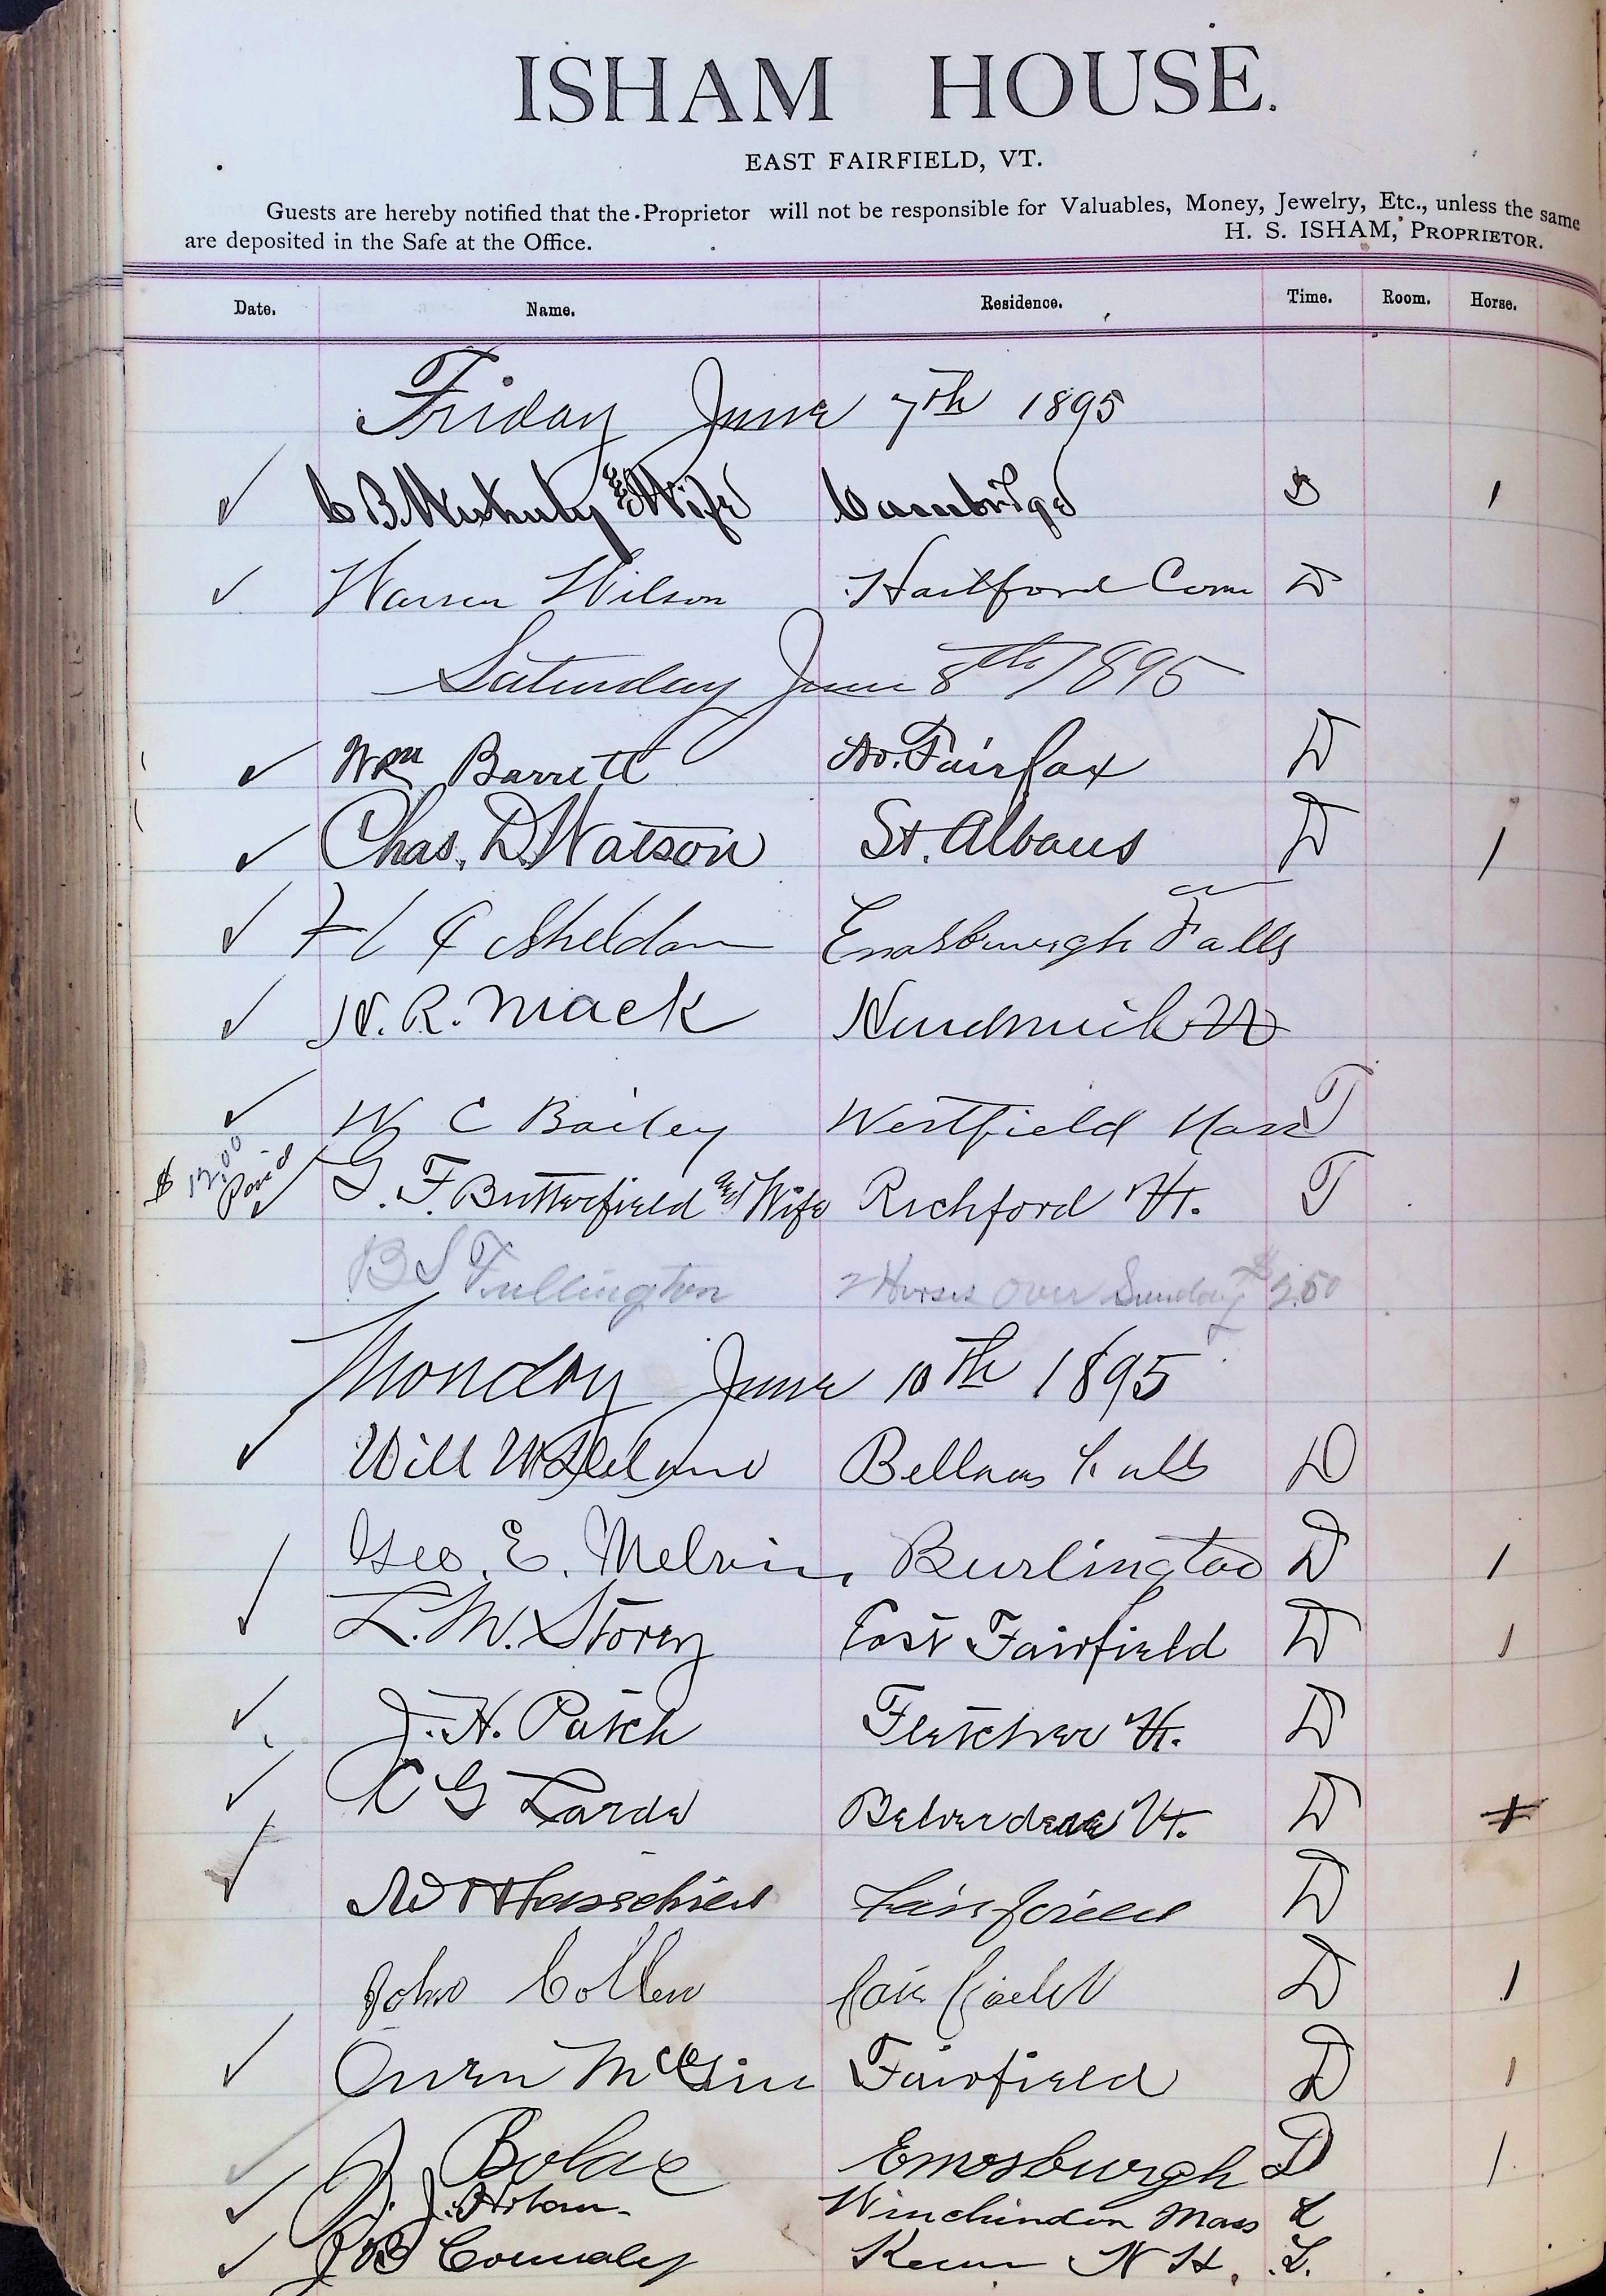 ISHAM HOUSE.
EAST FAIRFIELD, VT.
Guests are hereby notified that the Proprietor will not be responsible for Valuables, Money, Jewelry, Etc., unless the same
are deposited in the Safe at the Office. H. S. ISHAM, PROPRIETOR.
Date. Name. Residence. Time. Room. Horse.
Friday June 7th 1895
✓ C B & Wife Cambridge D 1
✓ Warren Wilson Hartford Conn D
Saturday June 8th 1895
✓ Wm Barrett No. Fairfax D
✓ Chas. D. Watson St. Albans D 1
✓ Sheldon Enosburgh Falls
✓ N. R. Mack
✓ W C Bailey Westfield Mass T
$ 12.00 Paid ✓ G. F. Butterfield and Wife Richford Vt. T
B S Fullington 2 Horses over Sunday $2.50
Monday June 10th 1895
✓ Will Bellows Falls D
Geo. E. Melvin, Burlington D 1
✓ L. M. Storey East Fairfield D 1
✓ J. H. Patch Fletcher Vt. D
✓ G Belverdere Vt. D
✓ Fairfield D
John Fairfield D 1
✓ Owen Fairfield D 1
✓ J. Enosburgh D 1
✓ J. Winchindon Mass L
✓ N H. L.